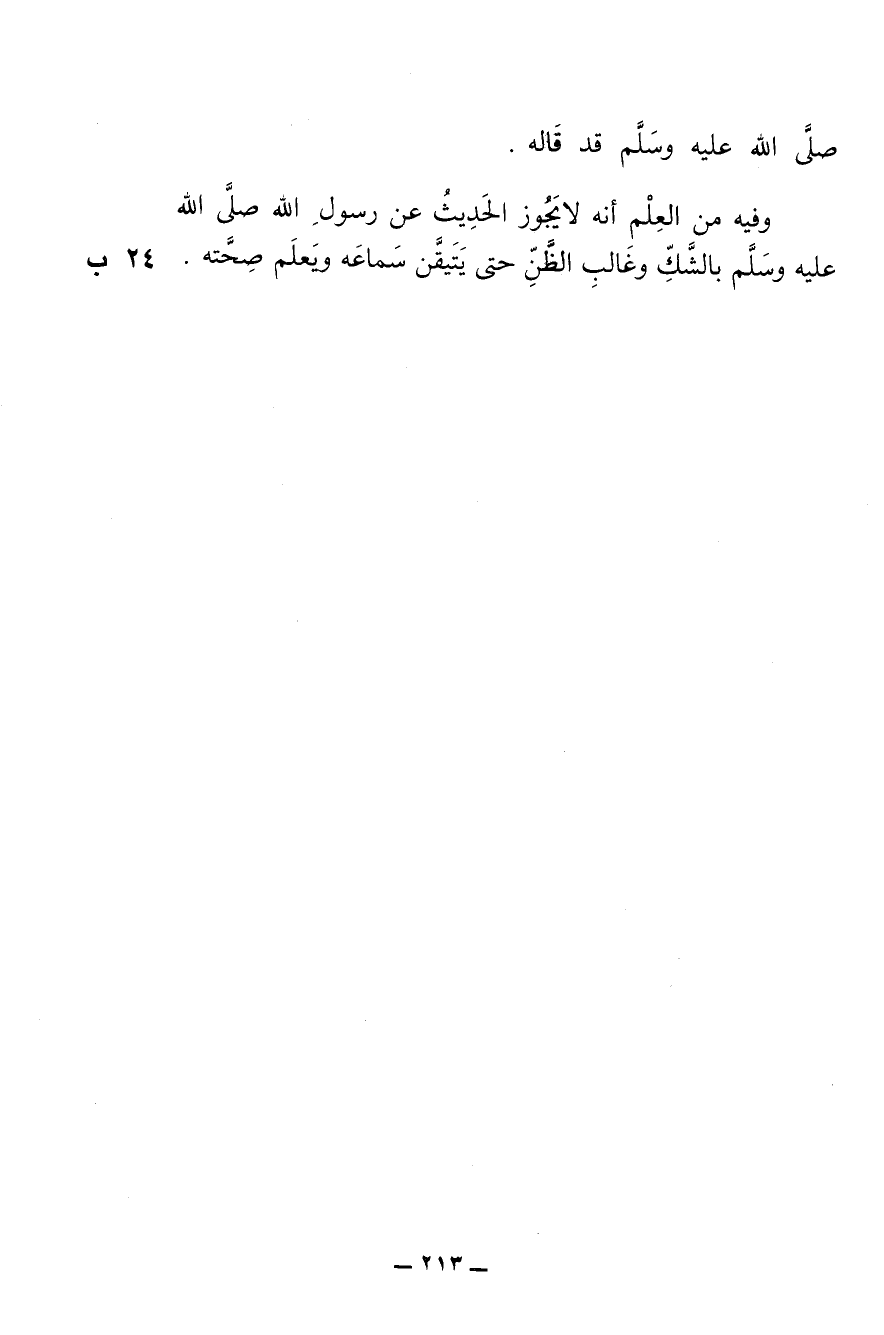 صلَّى الله عليه وسَلَّم قد قَاله .
وفيه من العِلْم أنه لايَجُوز الحَدِيثُ عن رسولِ الله صلَّى الله
عليه وسَلَّم بالشَّكِّ وغَالبِ الظَّنِّ حتى يَتَيقَّن سَماعَه ويَعلَم صِحَّته . ٢٤ ب
ـ ٢١٣ ـ